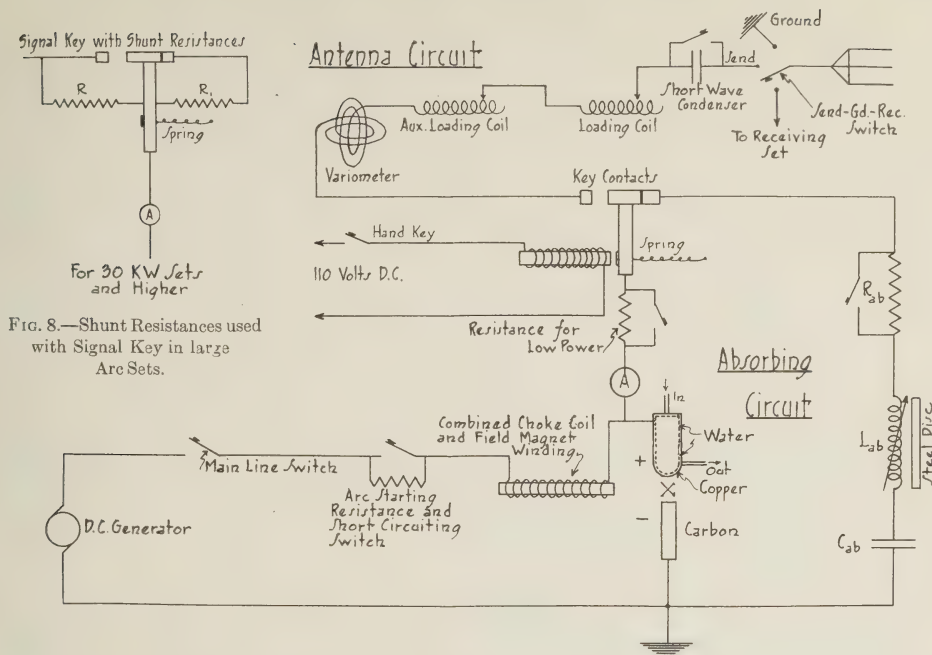 Signal Key with Shunt Resistances
R
R₁
Spring
A
For 30 KW Sets
and Higher
FIG. 8.—Shunt Resistances used
with Signal Key in large
Arc Sets.
Antenna Circuit
Ground
Send
Short Wave
Condenser
Send-Gd.-Rec.
Switch
To Receiving
Set
Aux. Loading Coil
Loading Coil
Variometer
Key Contacts
Hand Key
110 Volts D.C.
Spring
Resistance for
Low Power
A
R ab
Absorbing
Circuit
In
Water
Out
Copper
+
Combined Choke Coil
and Field Magnet
Winding
Main Line Switch
Arc Starting
Resistance and
Short Circuiting
Switch
D.C. Generator
−
Carbon
L ab
Steel Disc
C ab